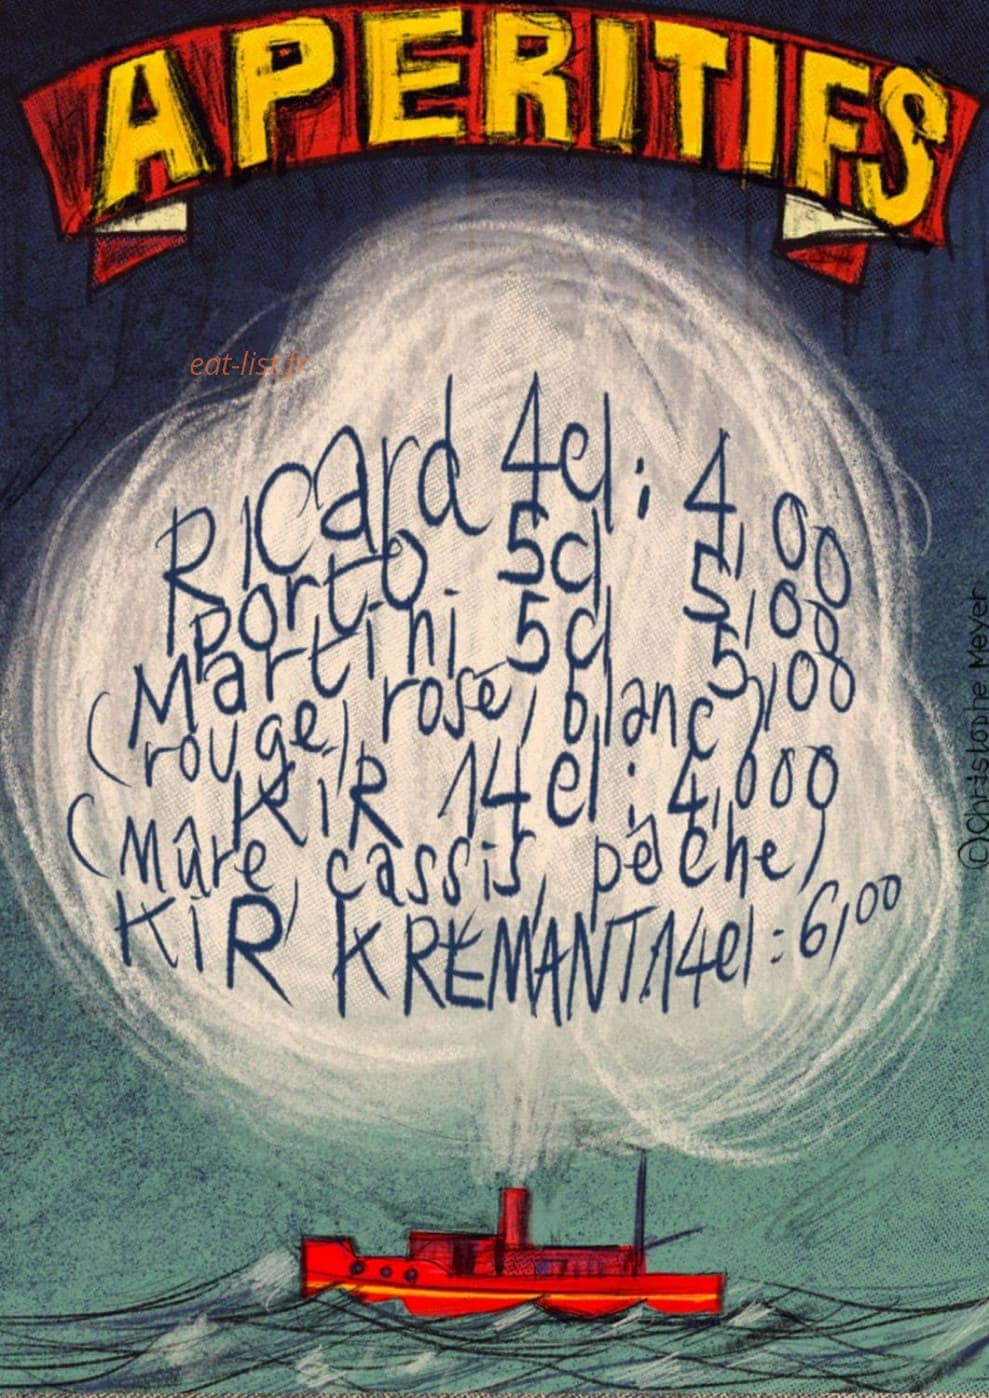 APERITIFS
eat-list.fr
RICard 4cl : 4,00
porto 5cl 5,00
Martini 5cl 5,00
(rouge, rosé, blanc)
KiR 14cl : 4,000
(Mûre, cassis, pêche)
KiR KREMANT.14cl : 6,00
©Christophe Meyer